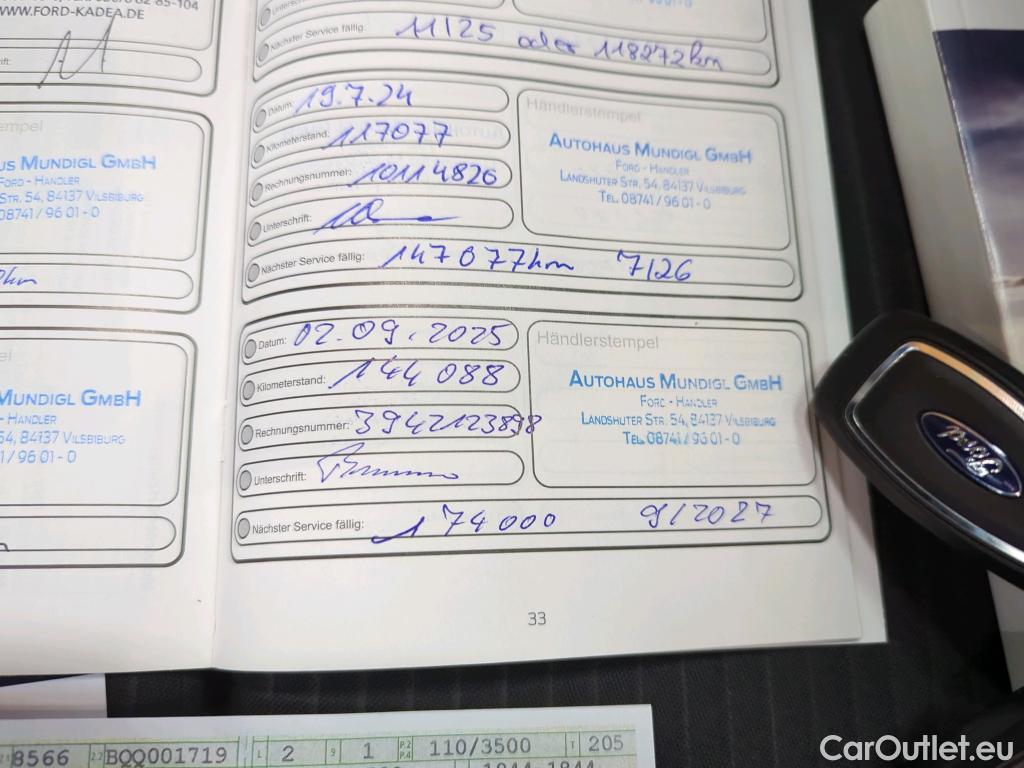 WWW.FORD-KADEA.DE
Nächster Service fällig: 11/25 oder 118272km
Datum: 19.7.24
Kilometerstand: 117077
Rechnungsnummer: 10114826
Unterschrift:
Nächster Service fällig: 147077km 7/26
Händlerstempel
AUTOHAUS MUNDIGL GMBH
FORD - HÄNDLER
LANDSHUTER STR. 54, 84137 VILSBIBURG
TEL. 08741 / 96 01 - 0
Datum: 02.09.2025
Kilometerstand: 144 088
Rechnungsnummer: 3942123898
Unterschrift:
Nächster Service fällig: 174000 9/2027
Händlerstempel
AUTOHAUS MUNDIGL GMBH
FORD - HÄNDLER
LANDSHUTER STR. 54, 84137 VILSBIBURG
TEL. 08741 / 96 01 - 0
MUNDIGL GMBH
FORD - HÄNDLER
STR. 54, 84137 VILSBIBURG
08741 / 96 01 - 0
km
MUNDIGL GMBH
- HÄNDLER
54, 84137 VILSBIBURG
/ 96 01 - 0
33
Ford
8566 2.2 BQQ001719 L 2 9 1 P.2 P.4 110/3500 T 205
CarOutlet.eu